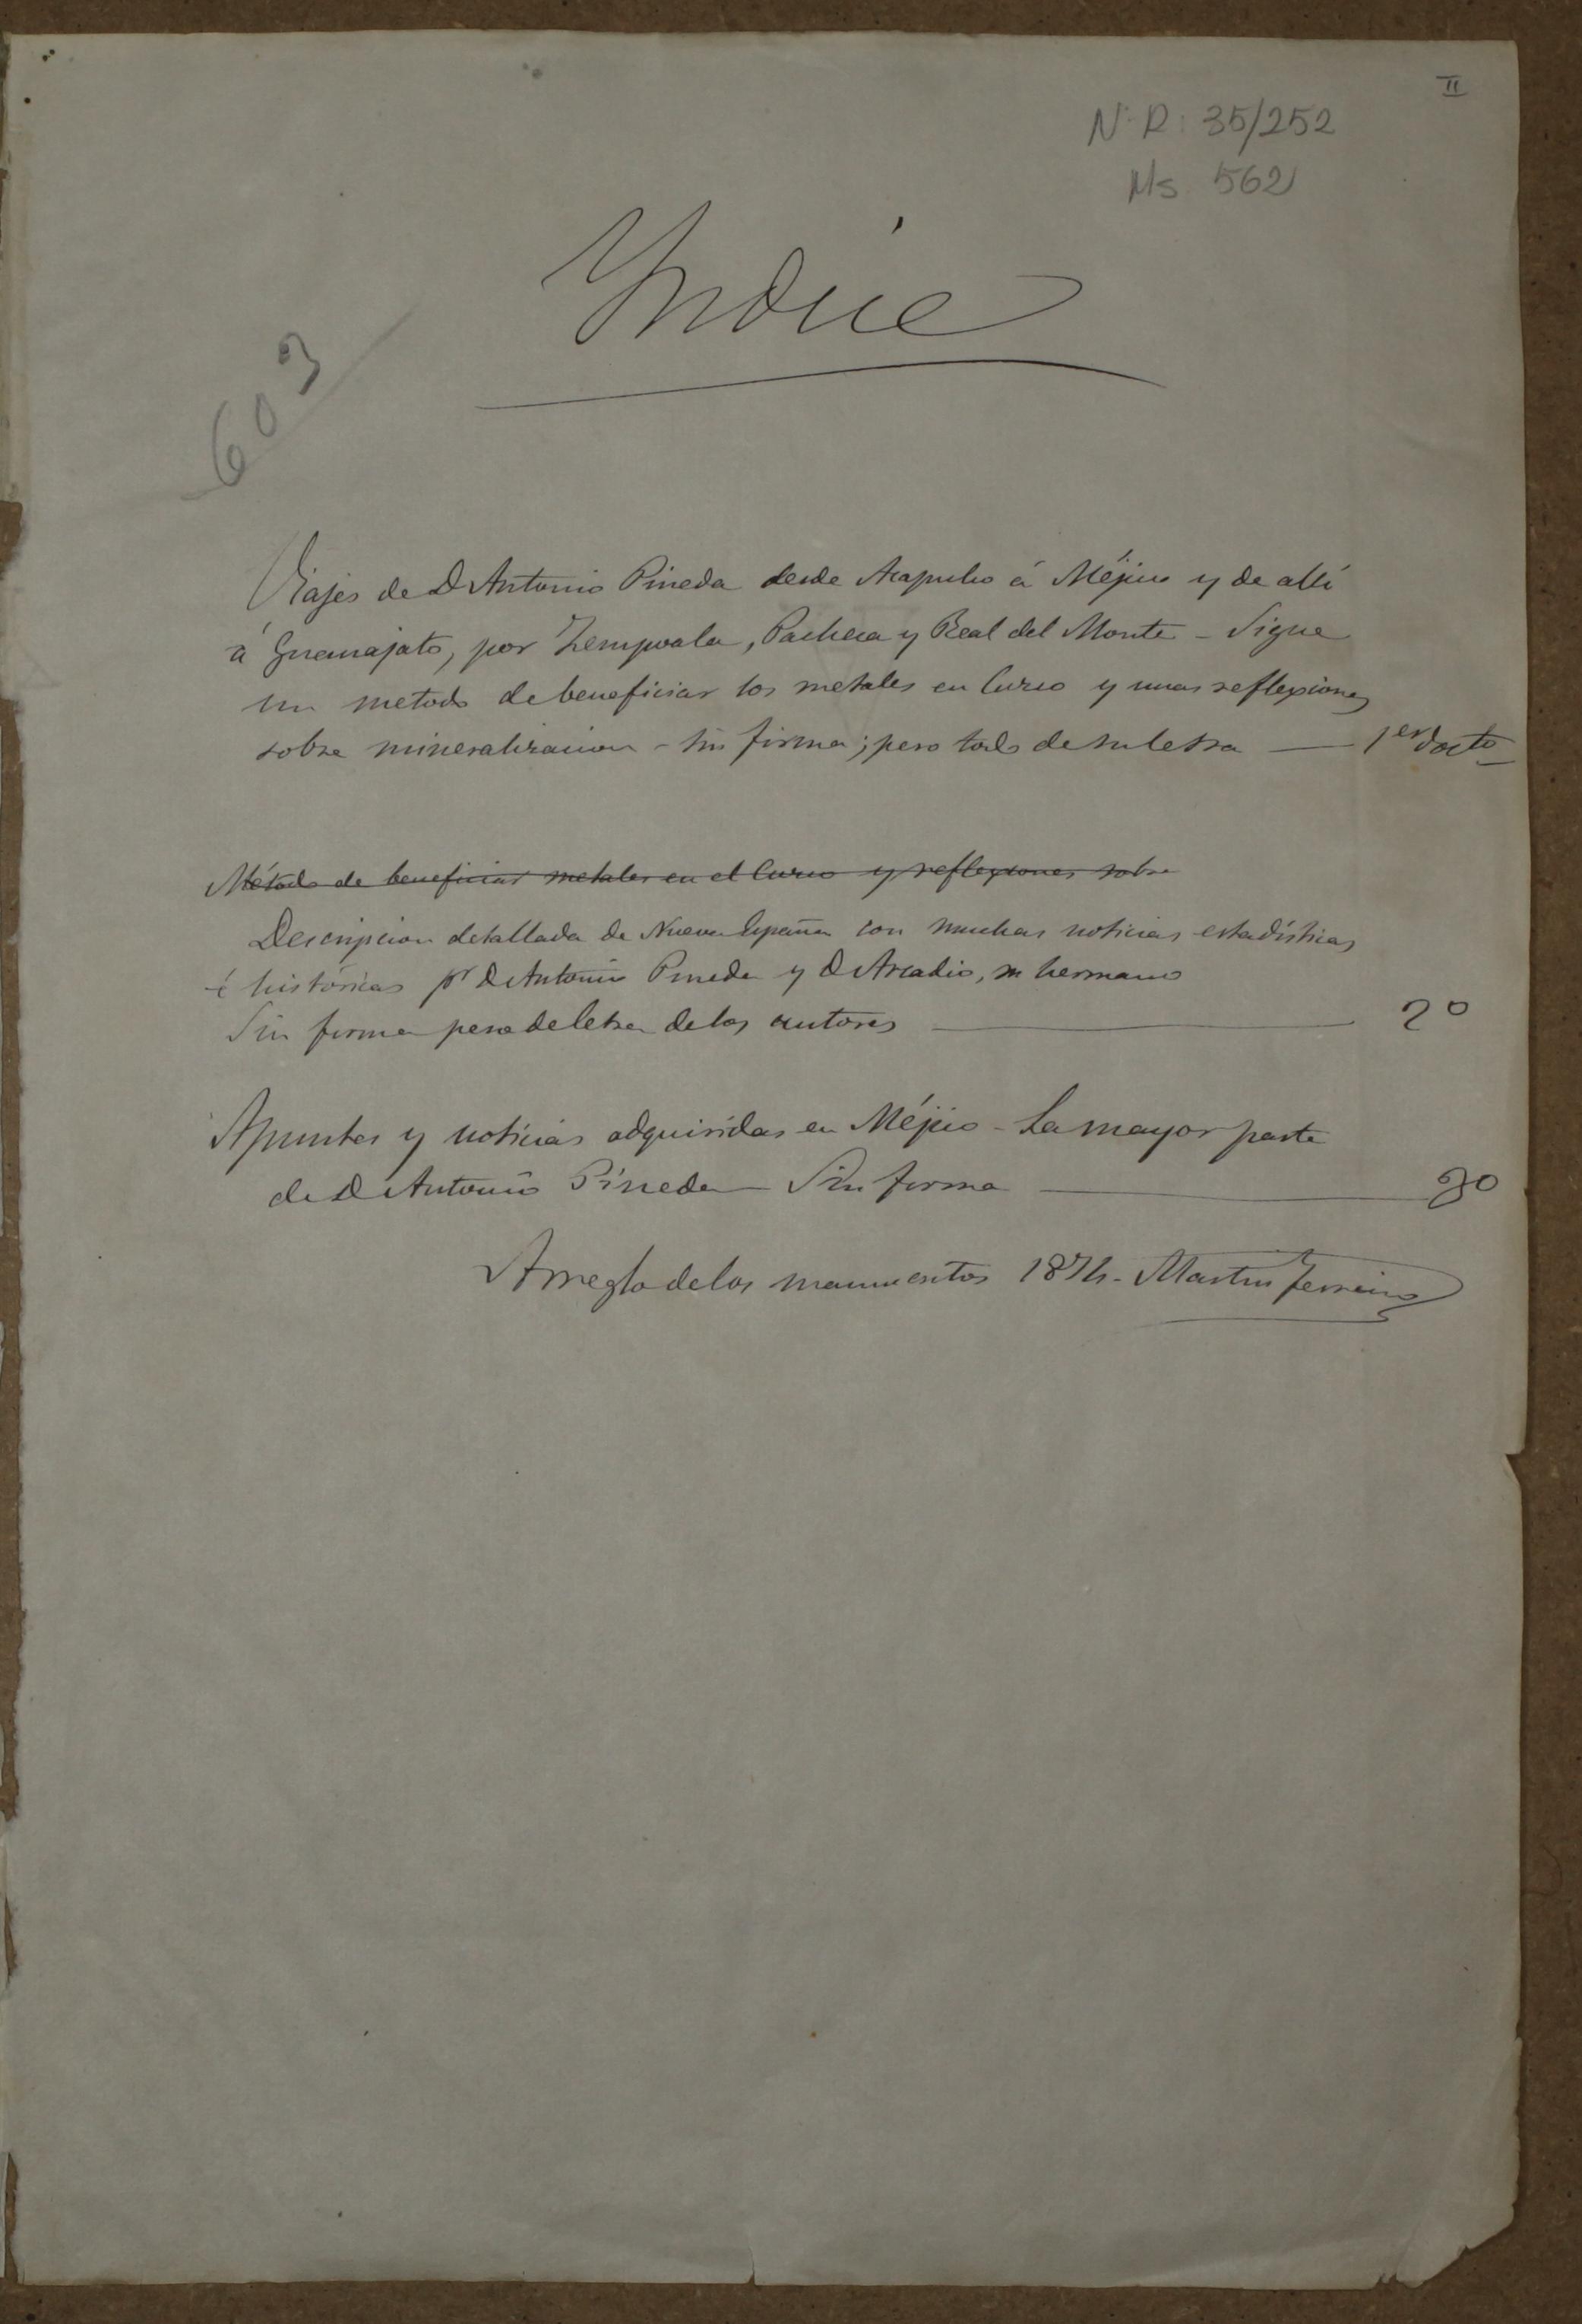 II
N. R: 35/252
Ms. 562
Yndice
603
Viajes de D Antonio Pineda desde Acapulco á Méjico y de allí
á Guanajato, por Zempoala, Pachuca y Real del Monte - Sigue
un metodo de beneficiar los metales en Curso y unas reflexiones
sobre mineralizacion - sin firma; pero todo de su letra — 1er docto
Método de beneficiar metales en el Curso y reflexiones sobre
Descripcion detallada de Nueva España con muchas noticias estadísticas
é históricas pr D Antonio Pineda y D Arcadio, su hermano
Sin firma pero de letra de los autores — 2º
Apuntes y noticias adquiridas en Méjico - La mayor parte
de D Antonio Pineda — Sin firma — 3º
Arreglo de los manuscritos 1874 - Martin Ferreiro